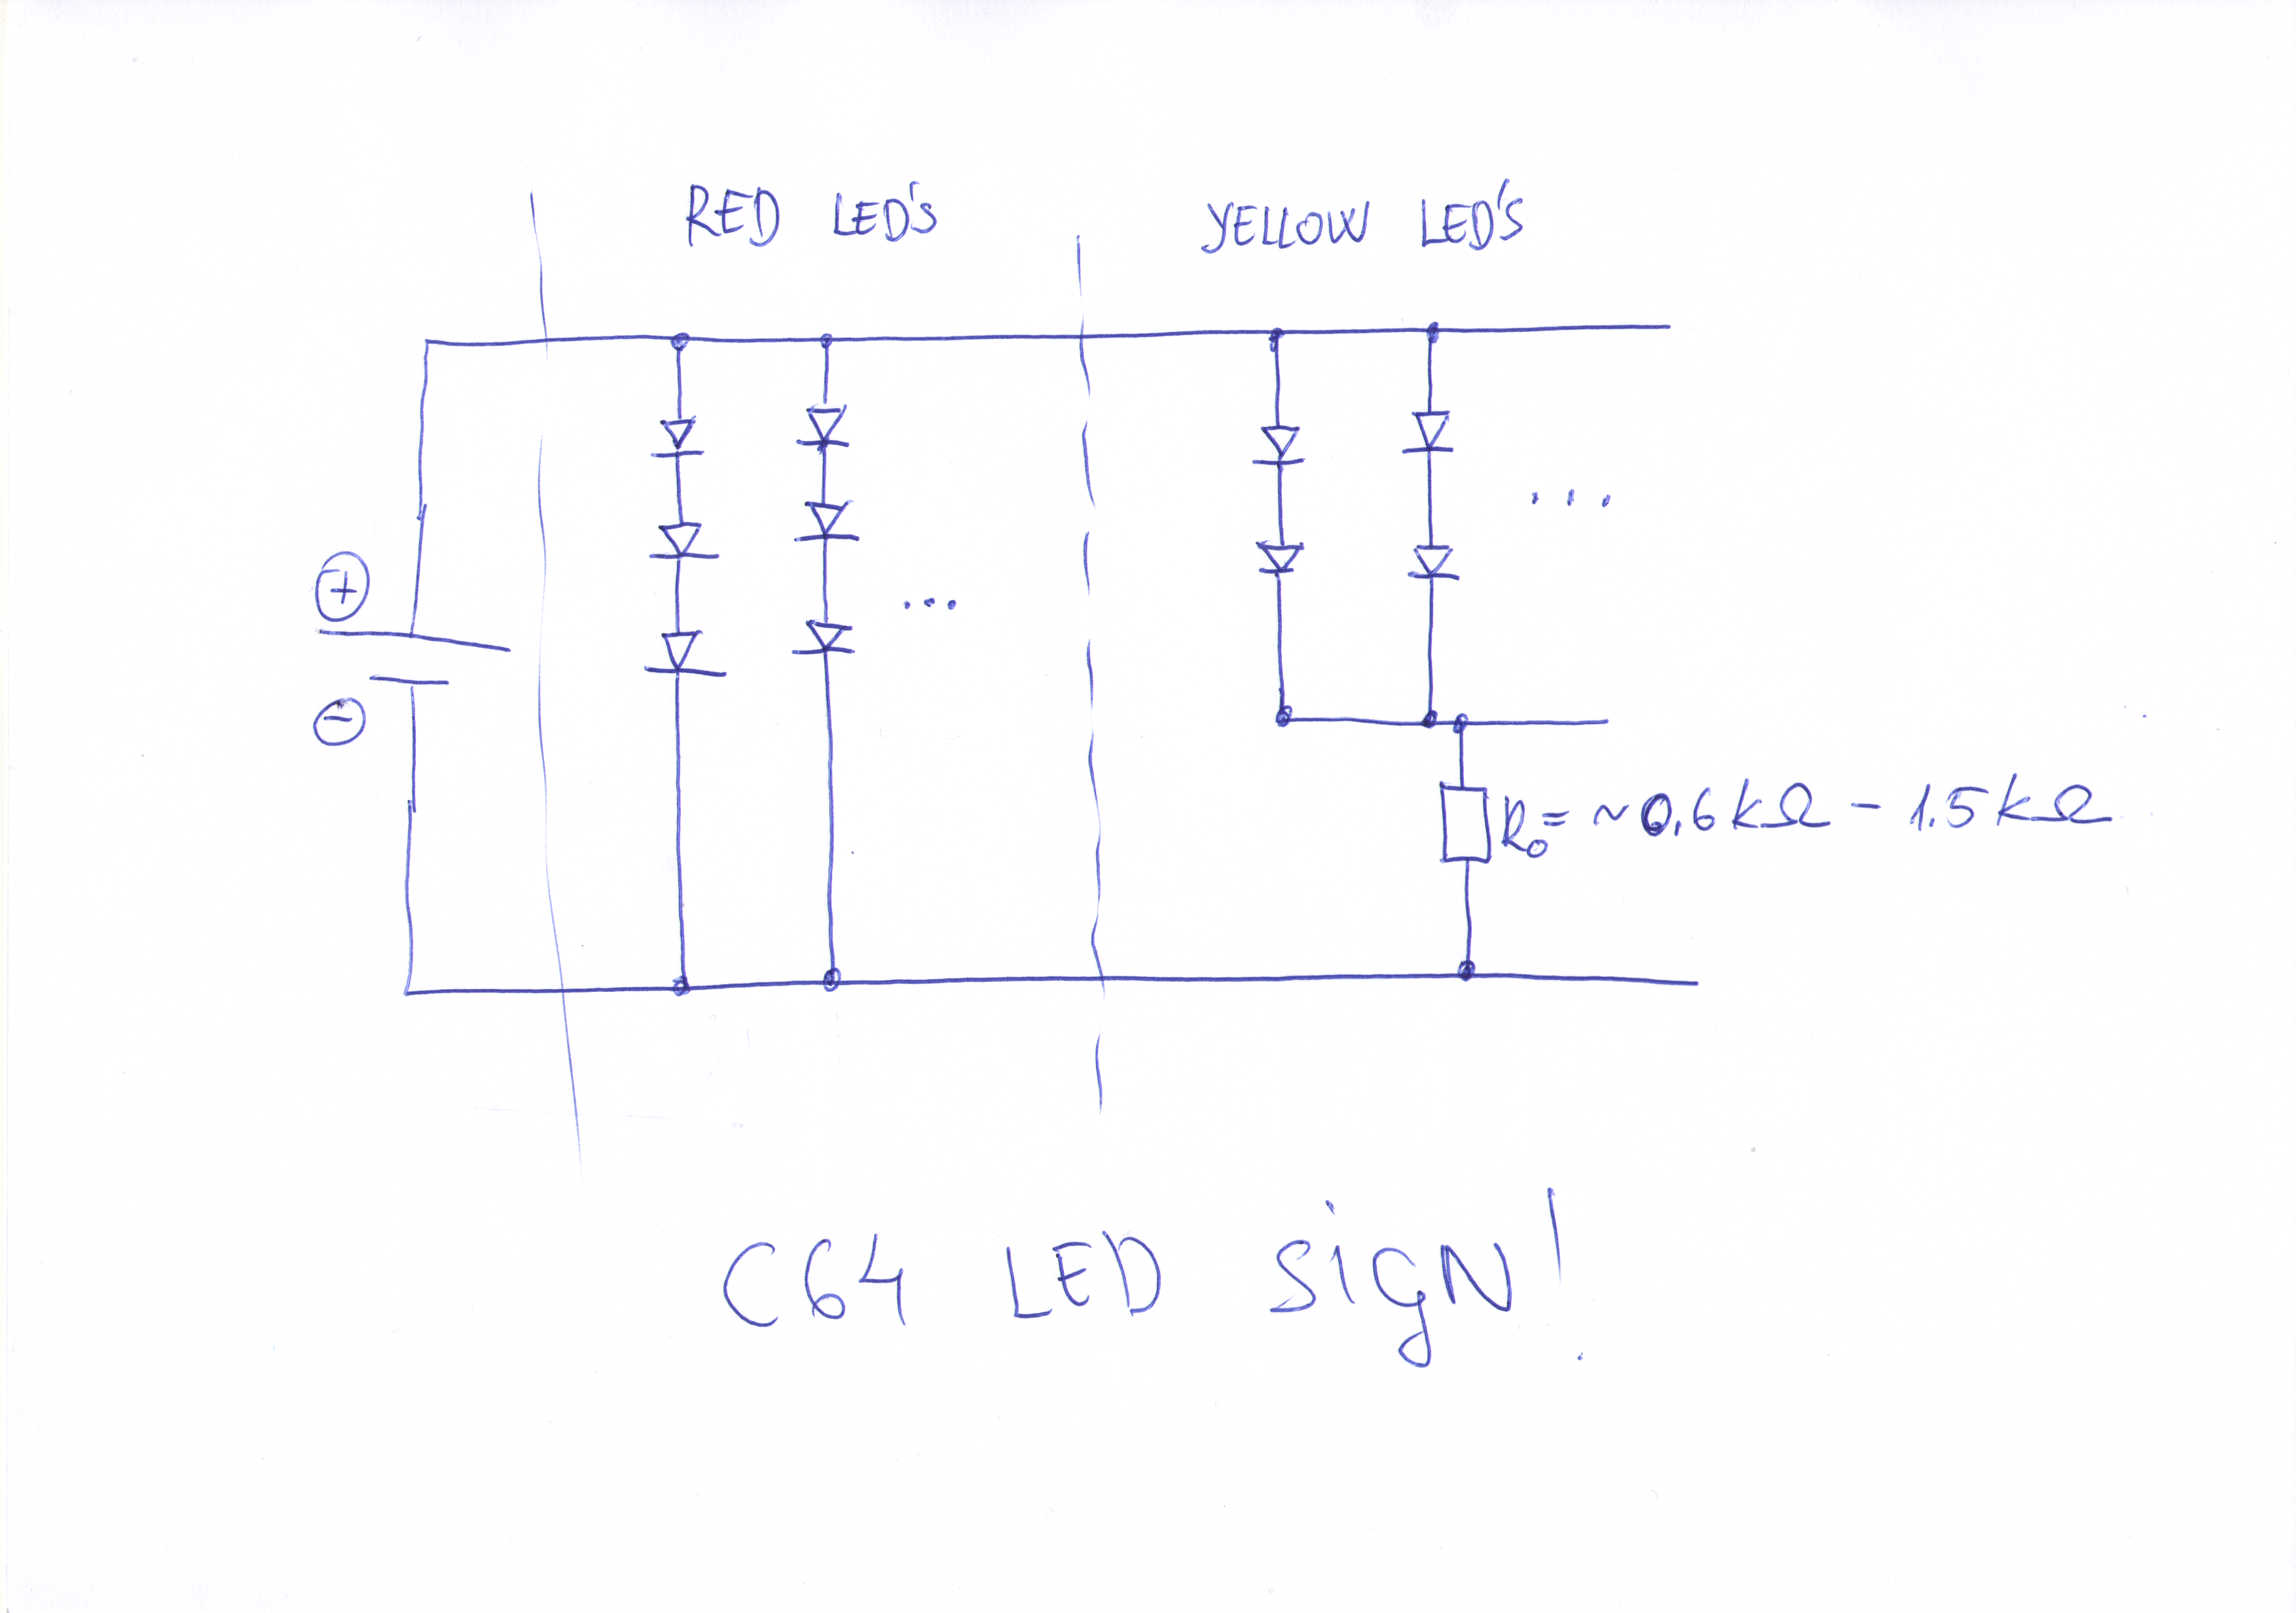 RED LED'S
YELLOW LED'S
+
-
...
...
R₀= ~0,6kΩ - 1.5kΩ
C64 LED SiGN!